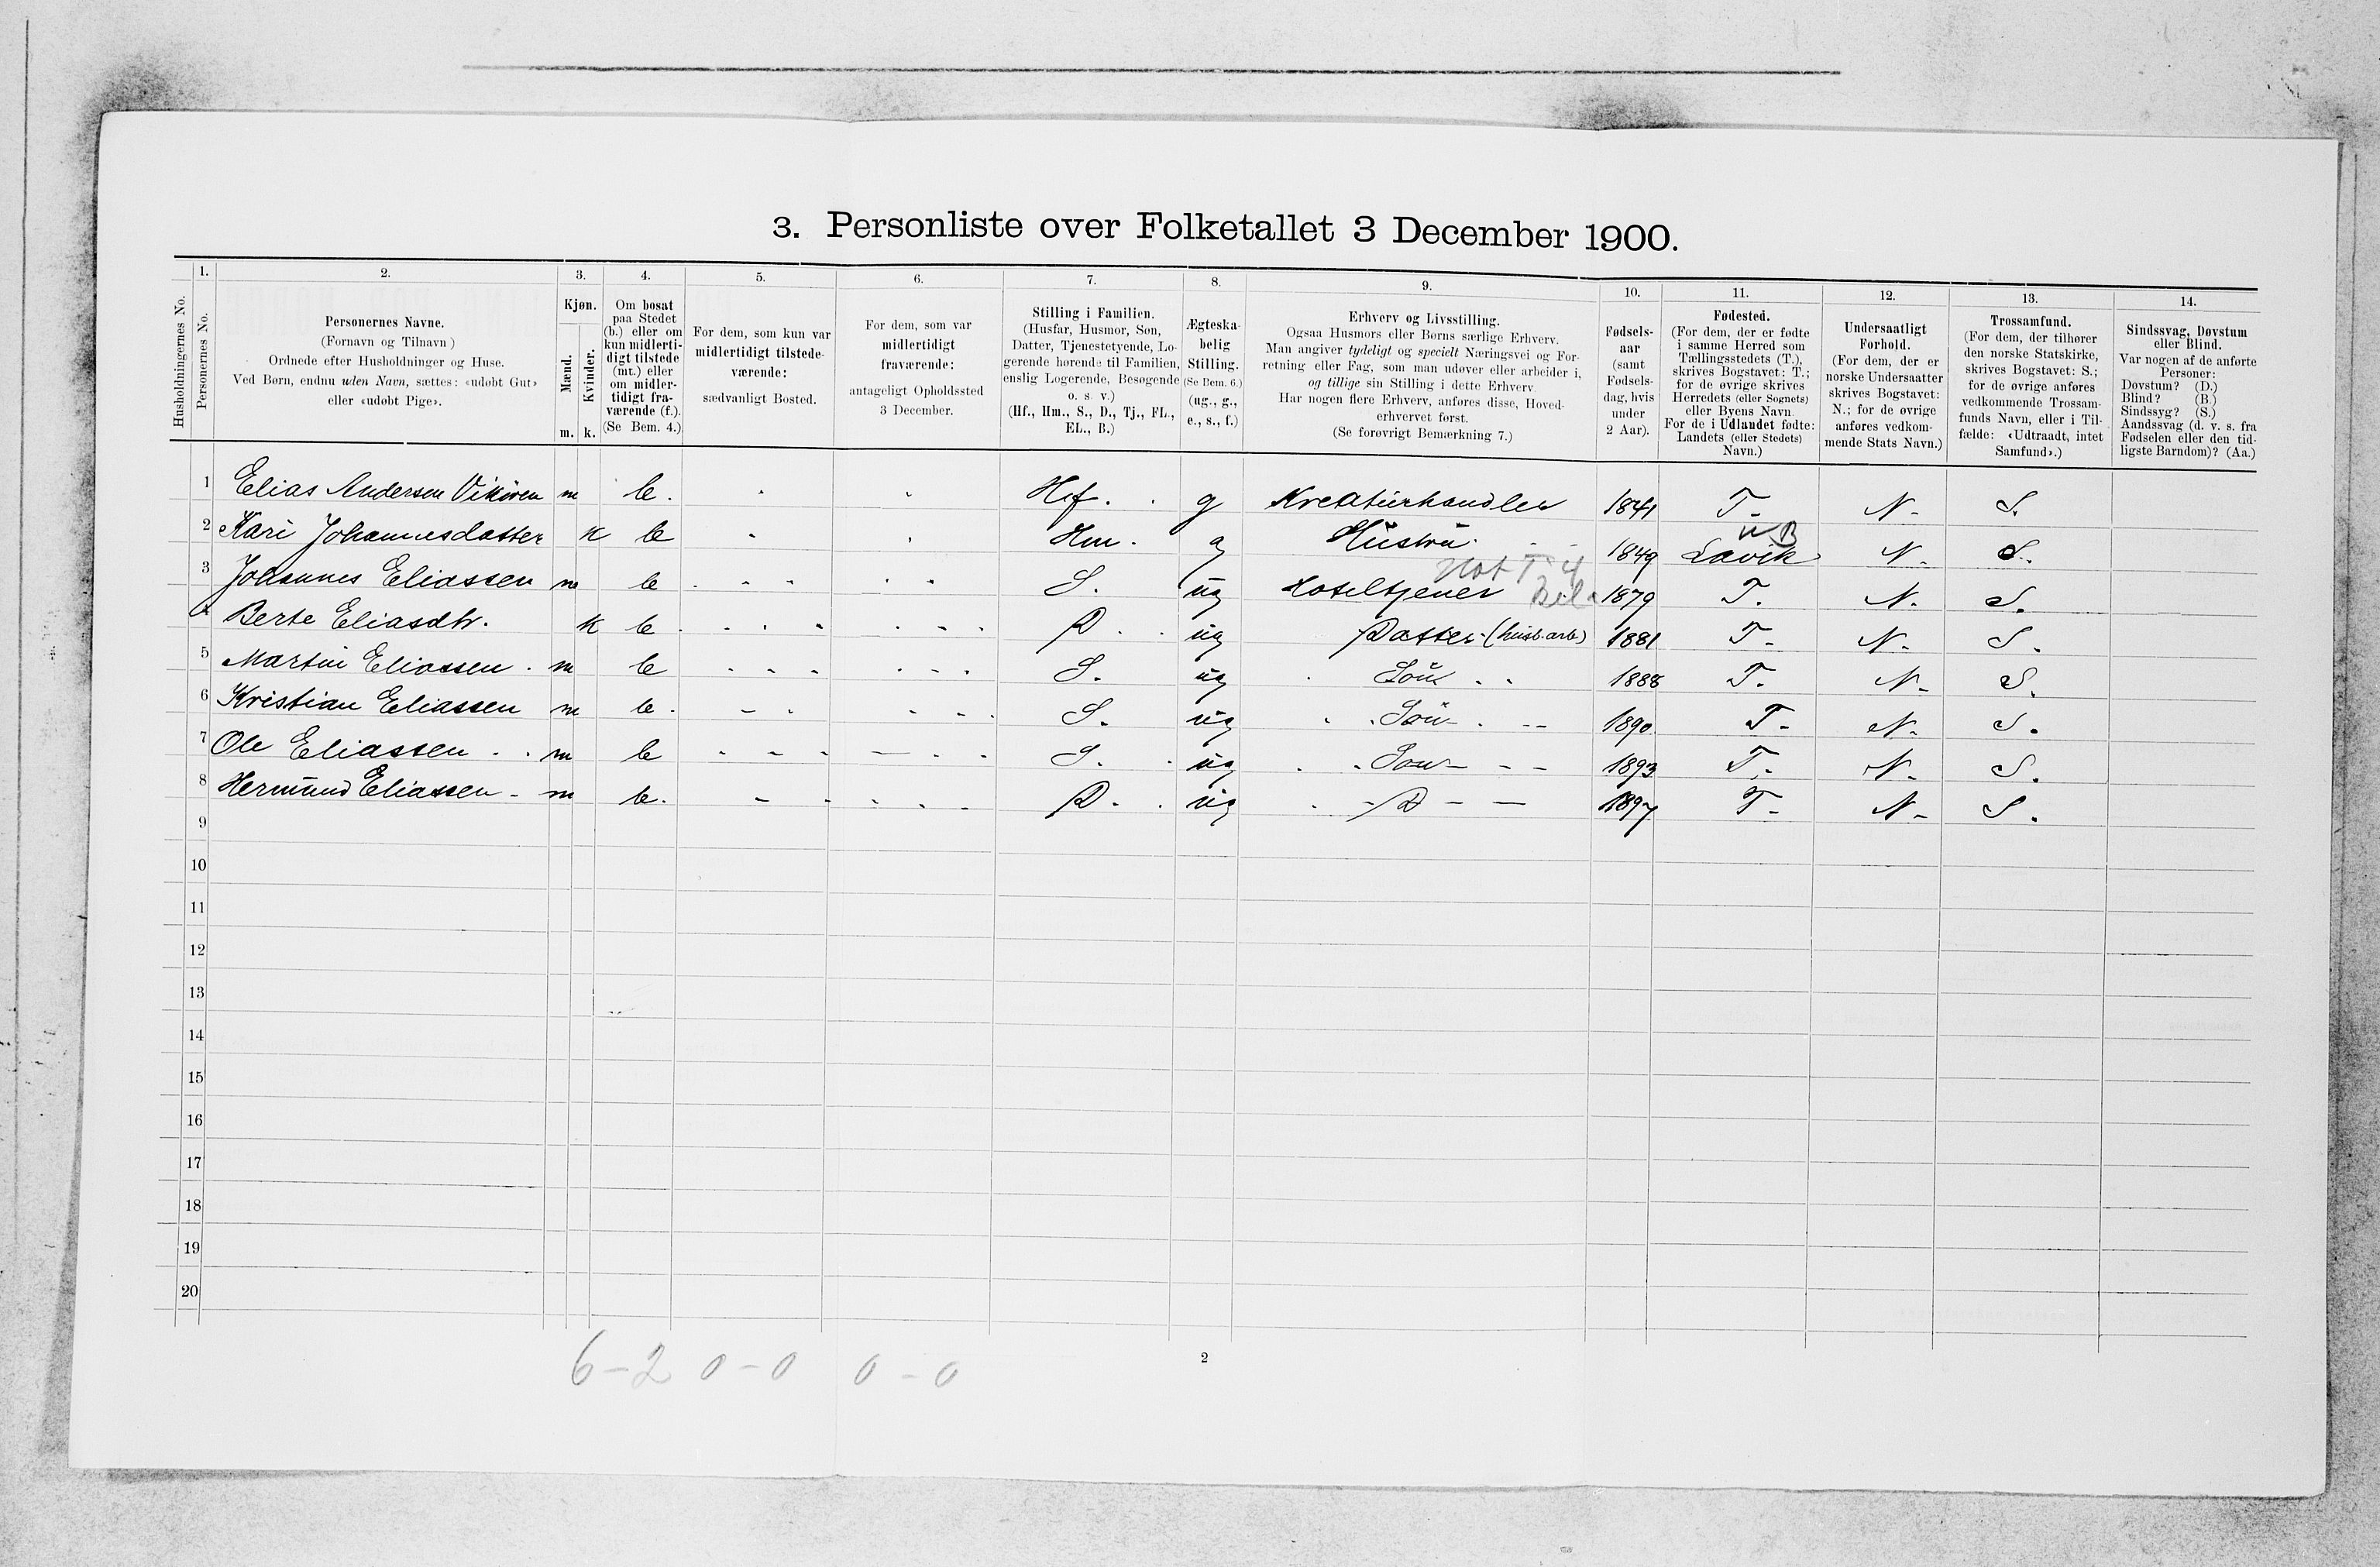 3. Personliste over Folketallet 3 December 1900.
1. 2. 3. 4. 5. 6. 7. 8. 9. 10. 11. 12. 13. 14.
Husholdningernes No.
Personernes No.
Personernes Navne.
(Fornavn og Tilnavn )
Ordnede efter Husholdninger og Huse.
Ved Børn, endnu uden Navn, sættes: «udøbt Gut»
eller «udøbt Pige».
Kjøn.
Mænd.
Kvinder.
m. k.
Om bosat
paa Stedet
(b.) eller om
kun midlerti-
digt tilstede
(mt.) eller
om midler-
tidigt fra-
værende (f.).
(Se Bem. 4.)
For dem, som kun var
midlertidigt tilstede-
værende:
sædvanligt Bosted.
For dem, som var
midlertidigt
fraværende:
antageligt Opholdssted
3 December.
Stilling i Familien.
(Husfar, Husmor, Søn,
Datter, Tjenestetyende, Lo-
gerende hørende til Familien,
enslig Logerende, Besøgende
o. s. v.)
(Hf., Hm., S., D., Tj., FL.,
EL., B.)
Ægteska-
belig
Stilling.
(Se Bem. 6.)
(ug., g.,
e., s., f.)
Erhverv og Livsstilling.
Ogsaa Husmors eller Børns særlige Erhverv.
Man angiver tydeligt og specielt Næringsvei og For-
retning eller Fag, som man udøver eller arbeider i,
og tillige sin Stilling i dette Erhverv.
Har nogen flere Erhverv, anføres disse, Hoved-
erhvervet først.
(Se forøvrigt Bemærkning 7.)
Fødsels-
aar
(samt
Fødsels-
dag, hvis
under
2 Aar).
Fødested.
(For dem, der er fødte
i samme Herred som
Tællingsstedets (T.),
skrives Bogstavet: T.;
for de øvrige skrives
Herredets (eller Sognets)
eller Byens Navn.
For de i Udlandet fødte:
Landets (eller Stedets)
Navn.)
Undersaatligt
Forhold.
(For dem, der er
norske Undersaatter
skrives Bogstavet:
N.; for de øvrige
anføres vedkom-
mende Stats Navn.)
Trossamfund.
(For dem, der tilhører
den norske Statskirke,
skrives Bogstavet: S.;
for de øvrige anføres
vedkommende Trossam-
funds Navn, eller i Til-
fælde: «Udtraadt, intet
Samfund».)
Sindssvag, Døvstum
eller Blind.
Var nogen af de anførte
Personer:
Døvstum? (D.)
Blind? (B.)
Sindssyg? (S.)
Aandssvag (d. v. s. fra
Fødselen eller den tid-
ligste Barndom)? (Aa.)
1 Elias Andersen Vikören m b. Hf. g Kreatürhandler 1841 T. N. S.
2 Kari Johannesdatter k b Hm. g Hüstrü 1849 Lavik N. S.
3 Johannes Eliassen m b S. üg Hoteltjener 1879 T. N. S.
4 Berte Eliasdtr. k b D. üg Datter (husb. arb) 1881 T. N. S.
5 Martin Eliassen m b S. üg Sön 1888 T. N. S.
6 Kristian Eliassen m b. S. üg Sön 1890 T. N. S.
7 Ole Eliassen m b S. üg Sön 1893 T. N. S.
8 Hermünd Eliassen m b. D. üg D 1897 T. N. S.
9
10
11
12
13
14
15
16
17
18
19
20
6-2 0-0 0-0
2